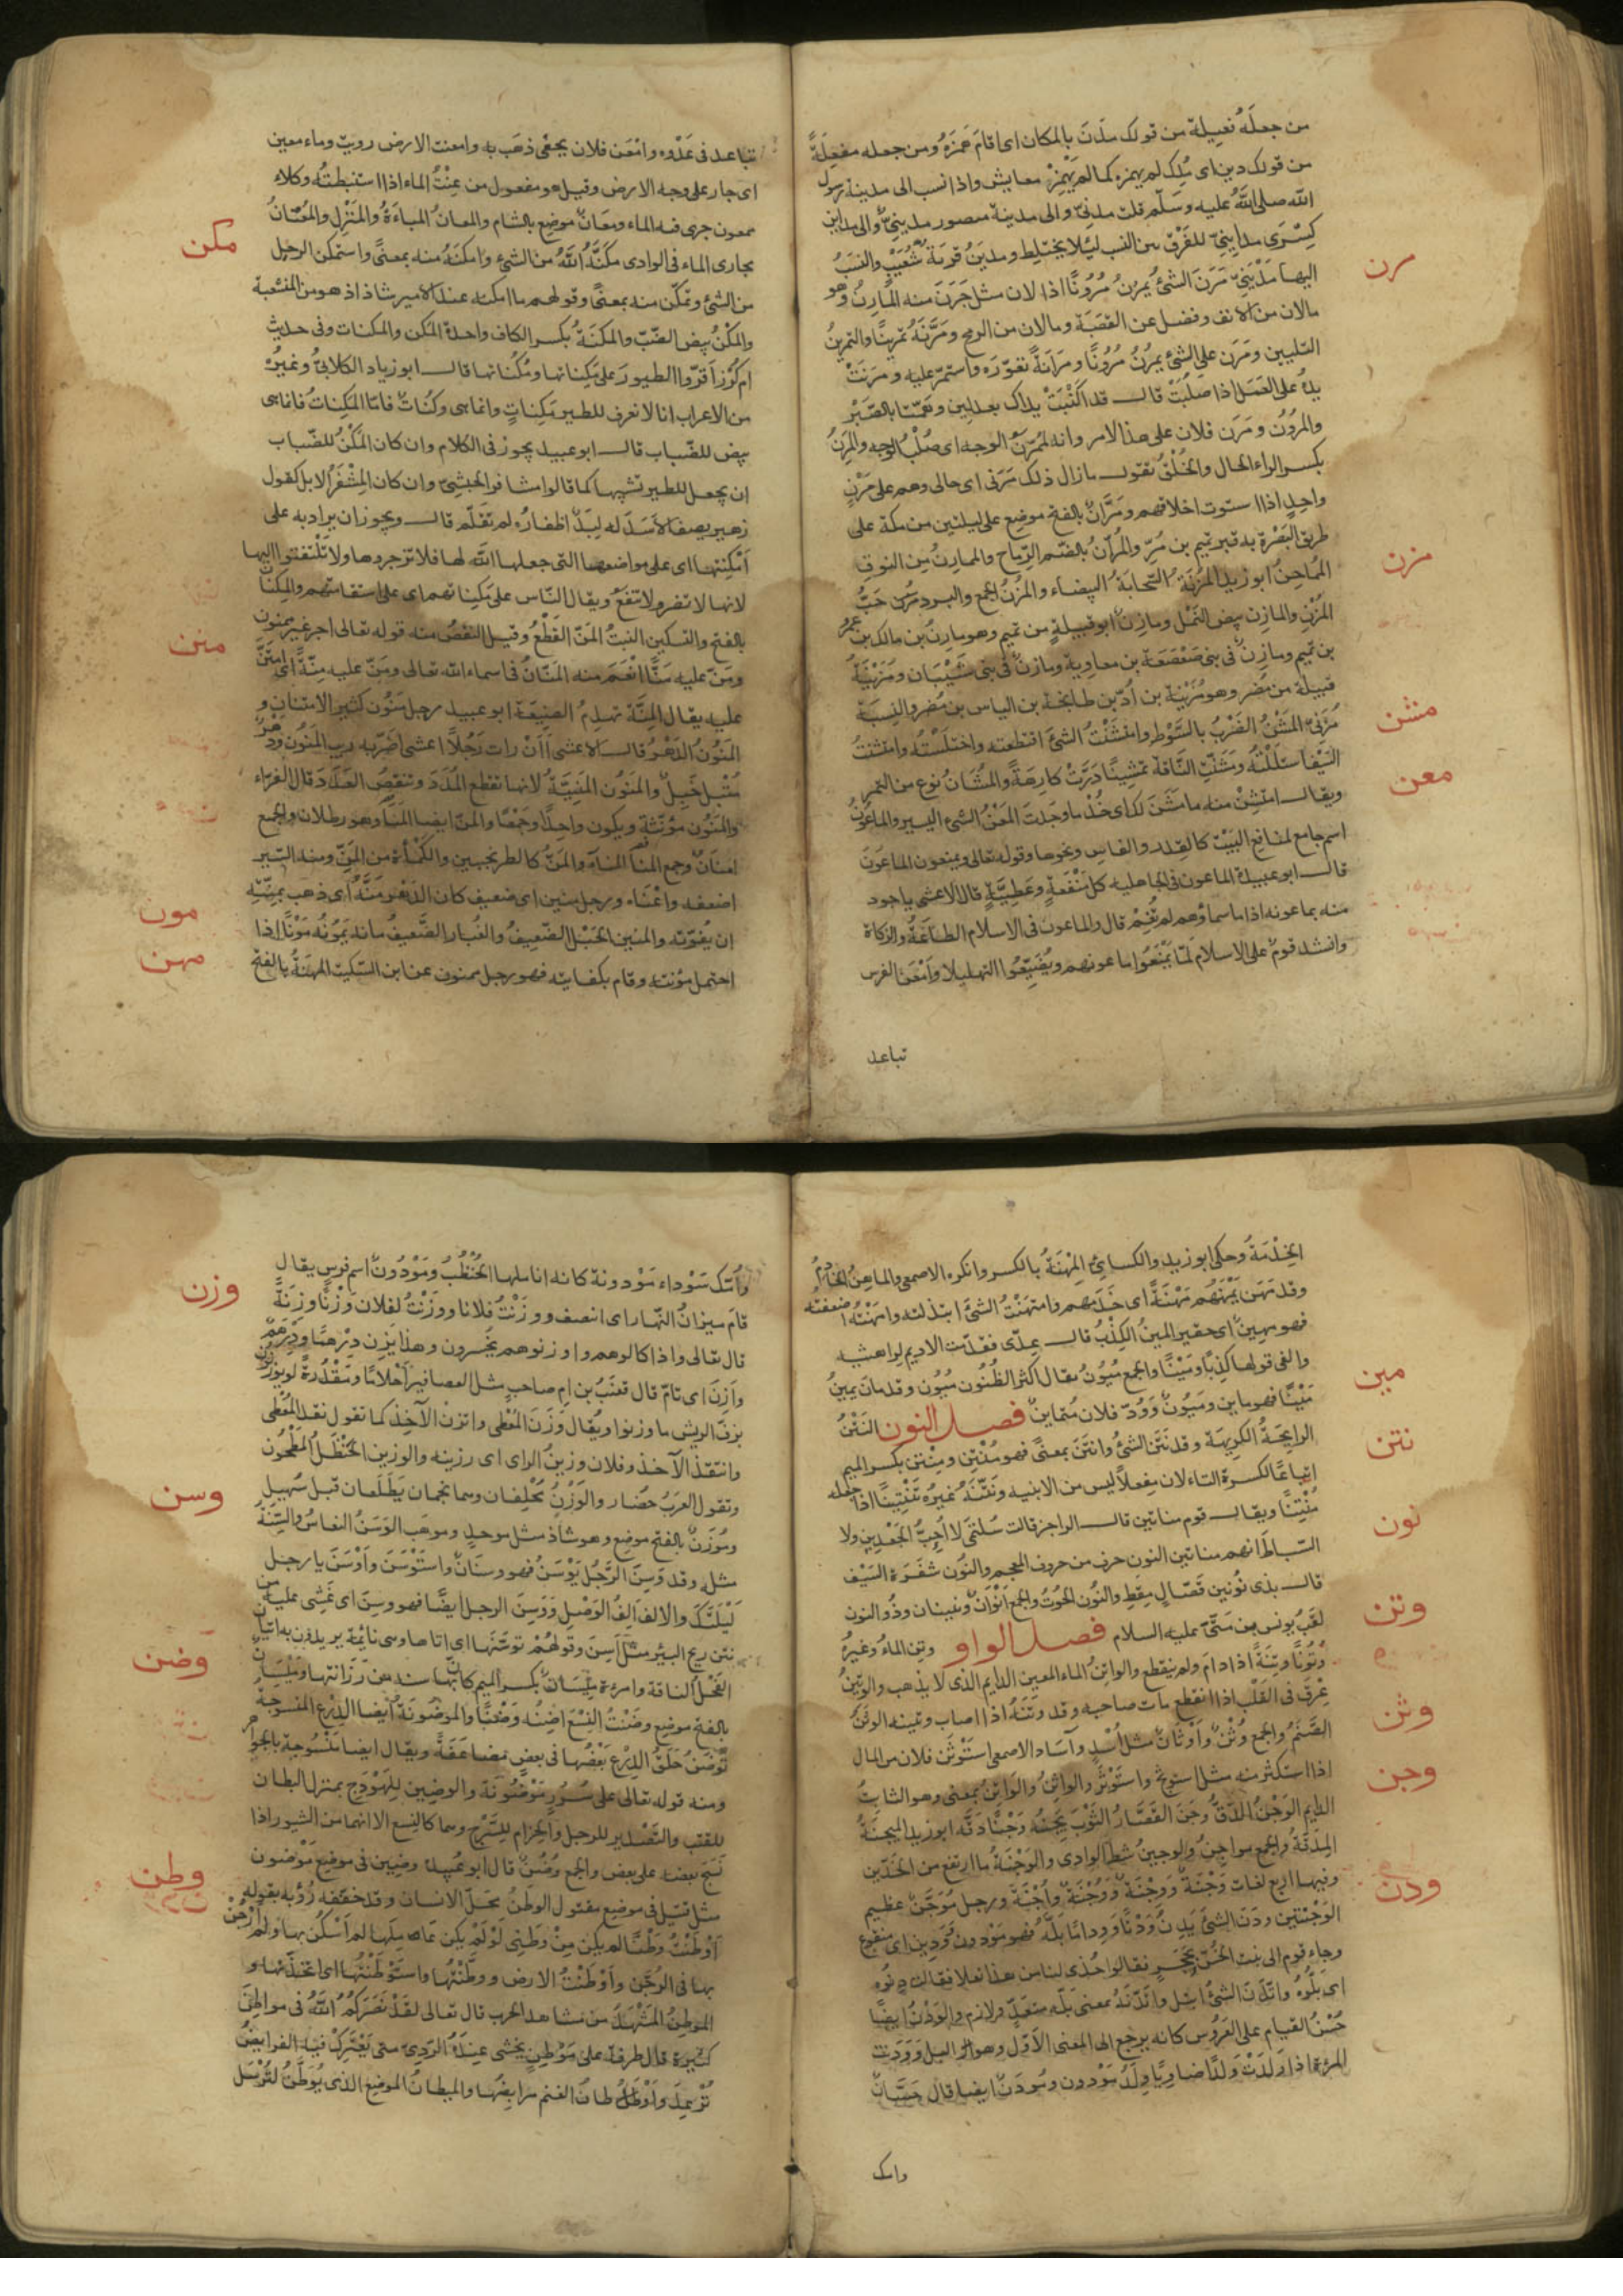 من جعلَهُ فَعِيلة من قولك مَدَنَ بالمكان اى اقام هَمَزَهُ ومن جعله مفعِلَةً
من قولك دين اى مُلِك لم يهمزه كما لم يَهْمِز معايش واذا نسب الى مدينة رسول
الله صلى اللهُ عليه وسَلّم قلت مدنىّ والى مدينة منصور مدينىّ والى مداين
كِسْرَى مداينىّ للفَرْق بين النسب لئلا يختلط ومدينَ قريَة شُعَيْبٍ والنسَبُ
مرن
اليها مَدْيَنِىّ مَرَنَ الشئ يُمرُن مُرُونًا اذا لان مثل جَرَنَ منه المَارِنُ وهو
مالان من الانف وفضل عن القصَبَة ومالان من الرمح ومَرَّنَهُ تمرينًا والتمرينُ
التليين ومَرَن على الشئ يمرُنُ مُرُونًا ومَرَانَةً تعوّدَه واستمرّ عليه ومرَنَتْ
يدُ على العَمَل اذا صَلُبَتْ قالـ قد اَكْنَبَتْ يداك بعد لِين وهمّتا بالصَّبْرِ
والمُرُون ومَرَن فلان على هذا الامر وانه لمُمَرّنُ الوجه اى صُلْبُ الوجه والمَرِنُ
بكسر الراء الحال والخُلُقُ تقول مازال ذلك مَرِنى اى حالى وهم على مَرْنٍ
واحِدٍ اذا استوت اخلاقهم ومَرَّانُ بالفتح موضع على ليلتين من مكة على
طريق البَصْرة به قبر تميم بن مُرّ والمُرّانُ بالضّم الرّماح والممارِنُ من النوق
مزن
المُمَاجِنُ ابو زيد المُزْنَةُ السّحابَةُ البيضاء والمُزْنُ الجمع والبرد حَبُّ
المُزْنِ والمازِن بيض النمْل ومازِنٌ ابو قبيلةٍ من تميم وهو مازِنُ بن مالك بن عمرو
بن تميم ومازِنٌ فى بنى صَعْصَعَة بن معاوية ومازِنٌ فى بنى شَيْبَان ومُزَيْنَةُ
قبيلة من مُضَر وهو مُزَيْنَة بن اُدّ بن طابخة بن الياس بن مُضر والنِسبَة
مشن
مُزَنىّ المَشْنُ الضَرْبُ بالسَّوْطِ وامتشنْتُ الشئ اقتطعته واختلستُه وامتشنتُ
السَيْفَ استَلَلْتُه ومَشنَتِ النّاقة تمشِينًا دَرَّتْ كارِهَةً والمُشَانُ نوع من التمر
معن
ويقالـ امتشِنْ منه مامشَنَ لك اى خُذْ ما وجَدتَ المَعْنُ الشئ اليسير والماعُونُ
اسم جامع لمنافع البَيْت كالقِدر والفاس ونحوها وقوله تعالى ويمنعون الماعونَ
قالـ ابو عبيدة الماعون فى الجاهلية كل مَنْفَعةٍ وعَطِيَّةٍ قال الاعشى باجود
منه بماعونه اذا ما سماؤهم لم تُغِيمْ قال والماعون فى الاسلام الطاعةُ والزكاة
وانشد قومٌ على الاسلام لمّا يَمْنَعُوا ماعونهم ويُضَيّعُوا التهليلا وأمعَن الفرس
تباعد
تباعد فى عَدْوِه وامْعَن فلان بحقّى ذهَب به وامعنت الارض رويتْ وماء معين
اى جار على وجه الارض وقيل هو مفعول من عِنْتُ الماء اذا استنبطتُه وكلاء
ممعون جرى فيه الماء ومَعَانٌ موضع بالشام والمعانُ المباءَةُ والمَنْزِل والمُعْنَانُ
مكن
مجارى الماء فى الوادى مكَّنَهُ اللهُ من الشئ وامكنَهُ منه بمعنىً واستمكن الرجل
من الشئ وتمكّن منه بمعنىً وقولهم ما امكنه عند الامير شاذ اذ هو من
والمَكْنُ بيض الضّبّ والمكِنَةُ بكسر الكاف واحدة المَكِن والمكِنات وفى حديث
ام كُرْز اَقرّوا الطيورَ على مَكِناتها ومُكُناتها قالـ ابو زياد الكلابىّ وغيرُه
من الاعراب انا لا نعرف للطير مَكِناتٍ وانما هى وكُناتٌ فامّا المَكِناتُ فانما هى
بيض للضّباب قالـ ابو عبيد يجوز فى الكلام وان كان المَكْنُ للضّباب
ان يجعل للطير تشبيها كما قالوا مشافر الحبشىّ وان كان المِشْفَرُ الابل كقول
زهير يصف الاَسَدَ له لِبَدٌ اظفارُه لم تقلّم قالـ ويجوز ان يراد به على
اَمْكِنَتِها اى على مواضعها التى جعلها الله لها فلا تزجروها ولا تلتفتوا اليها
لانها لا تضر ولا تنفع ويقال النّاس على مَكِناتهم اى على استقامتهم والمكنان
منن
بالفتح والتسكين النبتُ المَنّ القَطْعُ وقيل النقصُ منه قوله تعالى اجر غير ممنون
ومَنّ عليه مَنًّا انْعَم منه المَنّانُ فى اسماء الله تعالى ومَنّ عليه مِنّةً اى امتنّ
عليه يقال المِنَّة تهدِمُ الصنِيعَة ابو عبيد رجل مَنُون كثير الامتنان و
المَنُونُ الدَهْرُ قالـ الاعشى اَاَنْ رات رَجُلاً اعشى اضرّبه ريب المَنُون ودهْرٌ
مُقبل خَبِلٌ والمَنُون المَنِيَّةُ لانها تقطع المُدَدَ وتنقصُ العَدَدَ قال الفرّاء
والمَنُون مؤنثة ويكون واحِدًا وجَمْعًا والمنّ ايضا المَنَا وهو رطلان والجمع
امنانٌ وجمع المنا امناء والمَنّ كالطرنجبين والكَمْأة من المَنّ ومنه السّير
اضعفه واعْيَاه ورجل منين اى ضعيف كان الدَهْر منّهُ اى ذهب بمنّتِه
مون
ان بقوّته والمنين الحَبْل الضّعِيفُ والغُبار الضَّعِيفُ مانه يَمُونُه مَوْنًا اذا
مهن
احتمل مؤنته وقام بكفايته فهو رجل ممنون عن ابن السّكيت المِهنَةُ بالفتح
الخِدْمَةُ وحكى ابو زيد والكسائىّ المِهْنَةُ بالكسر وانكره الاصمعى والماهِنُ الخادِمُ
وقد مَهَن يَمْهَنُهُم مَهْنَةً اى خَدَمهم وامتهَنْتُ الشئ ابتذلته وامهَنْتُه اضعفته
فهو مهين اى حقير المينُ الكِذْبُ قالـ عدّى فقدّدت الاديم لراهشيه
مين
والفى قولها كذِبًا ومَيْنًا والجمع مُيُونٌ يقال اكثرُ الظُنُون مُيُون وقد مانَ يمينُ
مَيْنًا فهو ماين ومَيُونٌ ووُدّ فلان مُتماينٌ فصل النون النَتْنُ
نتن
الرايحَةُ الكريهَة وقد نَتَن الشئ وانتَنَ بمعنىً فهو مُنْتِن ومِنْتِن بكسر الميم
اتباعًا لكسرة التاء لان مِفعِلاً ليس من الابنيه ونَتّنَهُ غيرُه تَنْتِينًا اذا جعله
مُنْتِنًا ويقالـ قوم مناتين قالـ الراجز قالت سُلَيْمَى لا اُحِبُّ الجَعْدِين ولا
نون
السّباطَ انهم مناتين النون حرف من حروف المعجم والنُون شَفرَة السَيْف
قالـ بذى نُونين قَصّالٍ مِقَطٍ والنُون الحُوتُ والجمع انْوانٌ ونينان وذُو النون
وتن
لقبُ يونس بن متّىَ عليه السلام فصل الواو وتِن الماءُ وغيرُه
وُتُونًا وتِنَةً اذا دامَ ولم ينقطع والواتِنُ الماء المعين الدايم الذى لا يذهب والوتِينُ
عِرْقٌ فى القَلْب اذا انقطع مات صاحبه وقد وتَنهُ اذا اصاب وتينه الوَثَنُ
وثن
الصَّنَمُ والجمع وُثْنٌ وأوْثَانٌ مثل اُسْدٍ وآسَاد الاصمعى استَوْثَنَ فلان من المال
اذا استكثر منه مثل استوثج واستَوْثَرَ والواثِنُ والوَاتِنُ بمعنى وهو الثابِتُ
وجن
الدايم الوَجْنُ الدّقُّ وجَنَ القَصَّارُ الثَوْبَ يَجِنُهُ وَجْنًا دَقّه ابو زيد الميجنَةُ
المِدَقّةُ والجمع مواجِنُ والوجينُ شطّ الوادى والوَجْنةُ ما ارتفع من الخدّين
وفيها اربع لغات وَجْنَةٌ ووِجْنَةٌ ووُجْنَةٌ واُجْنَةٌ ورجل مُوَجّنٌ عظيم
ودن
الوَجْنَتين ودَنَ الشئ يَدِنُ وَدْنًا وَوِدانًا بَلّهُ فهو مَوْدون ووَدِين اى منقوع
وجاء قوم الى بنت الخُسّ بحَجَرٍ فقالوا احْذى لنا من هذا نعلا فقالت دِنُوه
اى بَلّوُه واتّدَن الشئ ابتل واتّدَنَهُ بمعنى بَلّه متعَدٍّ ولازم والودْنُ ايضًا
حُسْنُ القيام على العَرُوس كانه يرجع الى المعنى الأوّل وهو البل ووَدَنت
المرءة اذا ولدَتْ وَلدًا ضاويًّا والولَدُ مَوْدون ومُودَنٌ ايضا قال حَسّانُ
وامك
وأُمّك سَوْداء مَوْدونة كانه اناملها الحُنْظُبُ ومَوْدُونٌ اسم فرسٍ يقال
وزن
قامَ ميزانُ النّهار اى انصف ووزَنْتُ فلانا ووَزَنْتُ لفلان وَزْنًا وزِنَةً
قال تعالى واذا كالوهم او وزنوهم يخسِرون وهذا يَزِن دِرْهمًا ودِرهَمٌ
وازِنٌ اى تامّ قال قعنَبُ بن ام صاحبٍ مثل العصافير اَحْلامًا ومَقْدُرةً لو يوزنون
بزفّ الريش ما وزنوا ويُقال وَزَنَ المُعْطِى واتزن الآخِذُ كما تقول نقد المُعْطِى
وانتقذ الآخذ وفلان وزينُ الراى اى رزينه والوزين الحَنْظَلُ المَطْحُون
وتقول العرَبُ حضَارِ والوَزْنُ مُحْلِفان وهما نجمان يَطلعَان قبل سُهيلٍ
وسن
ومَوْزَنٌ بالفتح موضِع وهو شاذ مثل مَوحدٍ وموهَب الوَسَنُ النعاسُ والسِّنَةُ
مثله وقد وَسِنَ الرَّجُل يَوْسَنُ فهو وسنانٌ واستَوْسَنَ واَوْسَن يا رجل
لَيْلتَكَ والالف اَلِفُ الوَصْلِ ووَسِنَ الرجل ايضًا فهو وسِنٌ اى غَشِى عليه من
نتن ريح البئر مثل اَسِن وقولُهُمْ توسّنَها اى اتاها وهى نائمة يريدون به اتيان
وضن
الفَحْل الناقة وامرءة مِيْسَانٌ بكسر الميم كانّ بها سِنة من رَزانتها ومَيْسَانٌ
بالفتح موضع وضَنْتُ النِسْعَ اضِنُه وَضْنًا والموْضُونَةُ ايضا الدِرْعُ المنسُوجةُ
تُوضَنُ حَلَقُ الدِرْعِ بَعْضُها فى بعضٍ مُضاعَفَةً ويقال ايضا مَنْسُوجة بالجواهر
ومنه قوله تعالى على سُرُرٍ مَوْضُونَة والوضِين للهَوْدَج بمنزلة البطان
للقتَب والتَصْدير للرحل والحِزام للسّرْج وهما كالنِسع الا انهما من السُيور اذا
نُسج بعضه على بعض والجمع وُضُنٌ قال ابو عُبيدة وضِين فى موضع مَوْضون
وطن
مثل قتيل فى موضِع مقتول الوطَنُ مَحَلّ الانسان وقد خفّفه رُؤبة بقوله
اَوْطَنْتُ وَطْنًا لم يكن مِنْ وَطَنِى لوْ لَمْ يكن عَامِلها لم اَسْكُن بها ولم ارْجُنْ
بها فى الرُجَّن واَوْطَنْتُ الارض ووطّنْتُها واستَوْطَنْتُها اى اتخذتها و
الموْطِنُ المَشْهَدُ من مشاهد الحرب قال تعالى لقَدْ نَصَرَكُمُ اللهُ فى مواطِنَ
كثيرة قال طرفة على مَوْطِنٍ يخشى عِندَهُ الرّدِىّ متى يَعْتَرِكْ فيه الفرايصُ
تُرْعِدِ واَوْطانُ الغنم مرابِضُها والميطانُ الموضع الذى يُوَطَّنُ لتُرْسَل